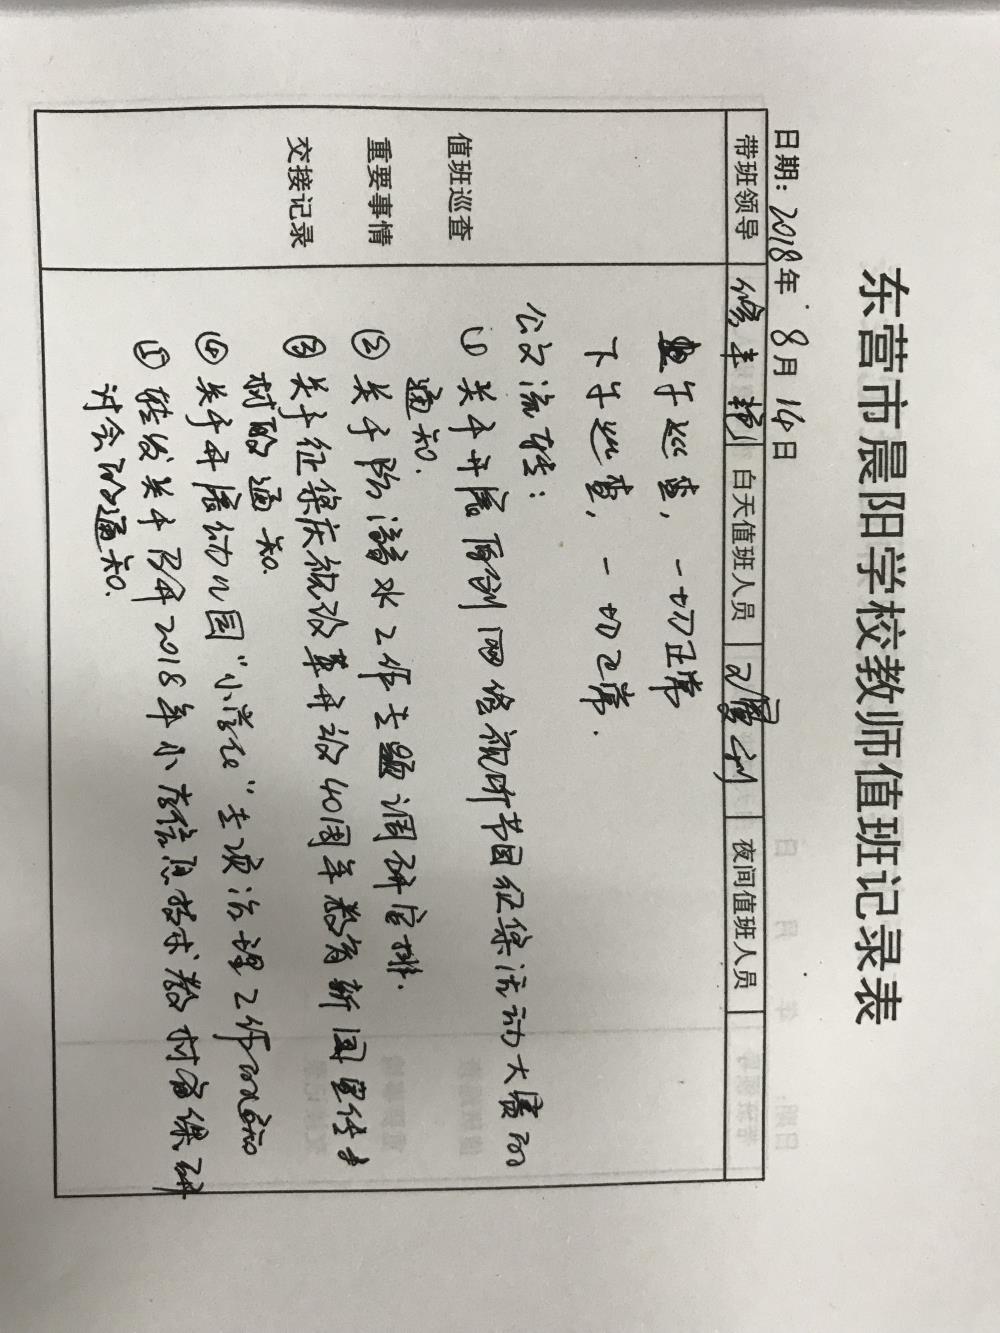 东营市晨阳学校教师值班记录表
日期: 2018年 8月 14日
带班领导 白天值班人员 夜间值班人员
值班巡查
重要事情
交接记录
上午巡查，一切正常
下午巡查，一切正常.
公文流转：
① 关于开展原创网络视听节目征集活动大赛的
通知.
② 关于防溺水工作专题调研安排.
③ 关于征集庆祝改革开放40周年教育新闻宣传素
材的通知.
④ 关于开展幼儿园“小学化”专项治理工作的通知
⑤ 转发关于召开2018年小学信息技术教材备课研
讨会的通知.